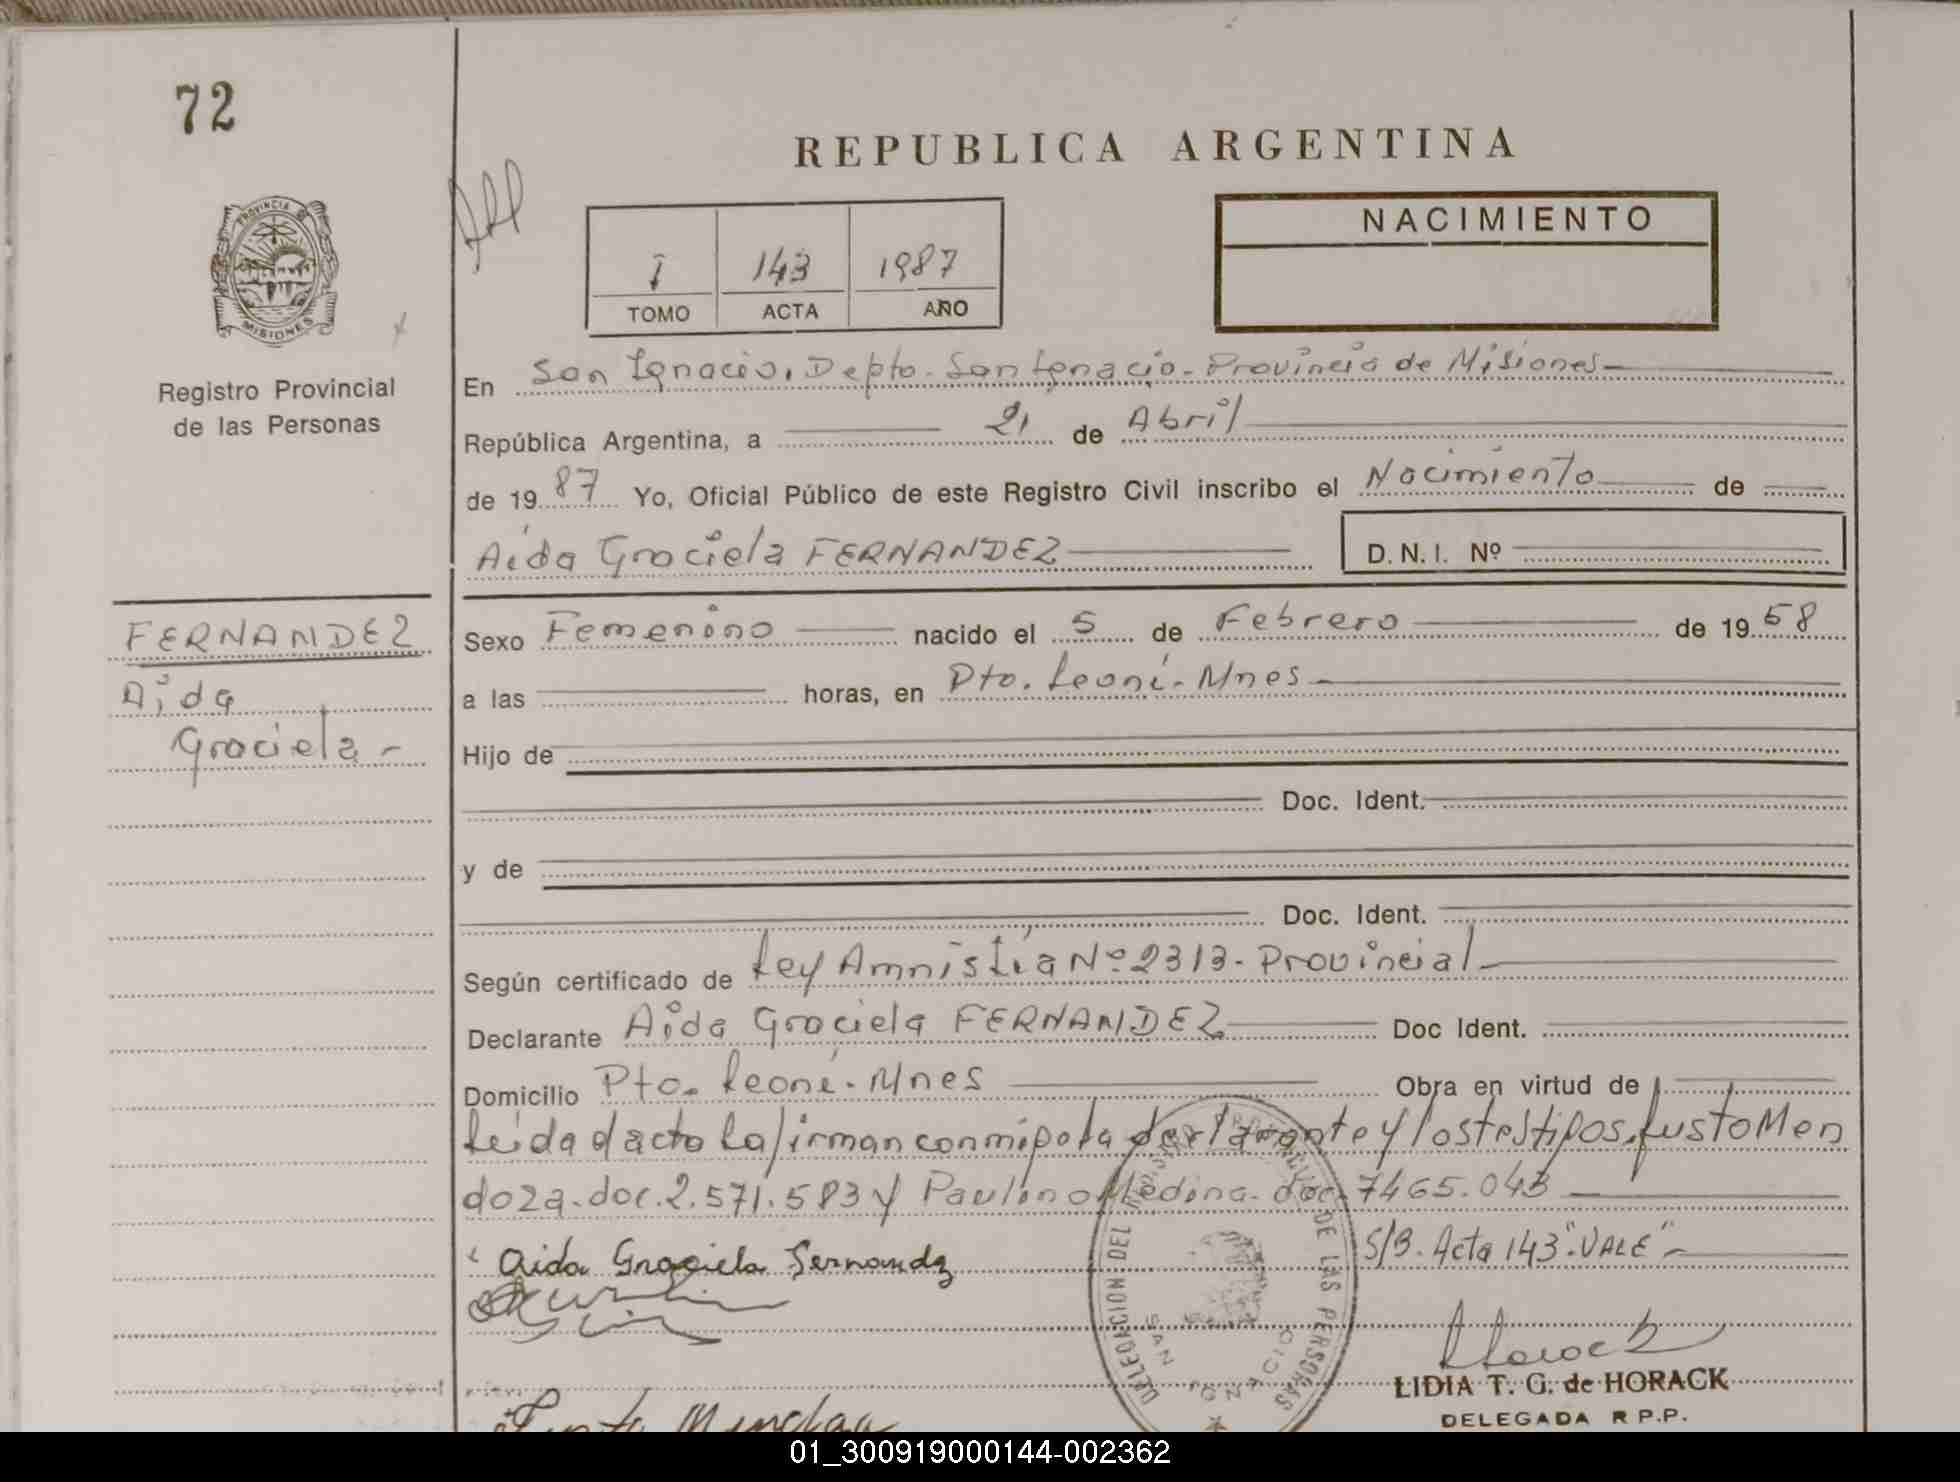 72
REPUBLICA ARGENTINA
PROVINCIA DE
MISIONES
Registro Provincial
de las Personas
I 143 1987
TOMO ACTA AÑO
NACIMIENTO
En San Ignacio. Depto. San Ignacio. Provincia de Misiones
República Argentina, a 21 de Abril
de 1987 Yo, Oficial Público de este Registro Civil inscribo el Nacimiento de
Aida Graciela FERNANDEZ D.N.I. Nº
FERNANDEZ
Aida
Graciela -
Sexo Femenino nacido el 5 de Febrero de 1958
a las horas, en Pto. Leoni - Mnes
Hijo de
Doc. Ident.
y de
Doc. Ident.
Según certificado de Ley Amnistía Nº 2313 - Provincial
Declarante Aida Graciela FERNANDEZ Doc Ident.
Domicilio Pto. Leoni - Mnes Obra en virtud de
Leida el acto La firman conmigo la y los testigos. Justo Men
doza. doc. 2.571.583 y Paulino Medina. doc. 7465.043
S/B. Acta 143 "VALE"
Aida Graciela Fernandz
DELEGACION DEL REGISTRO PROVINCIAL DE LAS PERSONAS
SAN IGNACIO
Horack
LIDIA T. G. de HORACK
DELEGADA R P.P.
Justo Mendoza
01_300919000144-002362